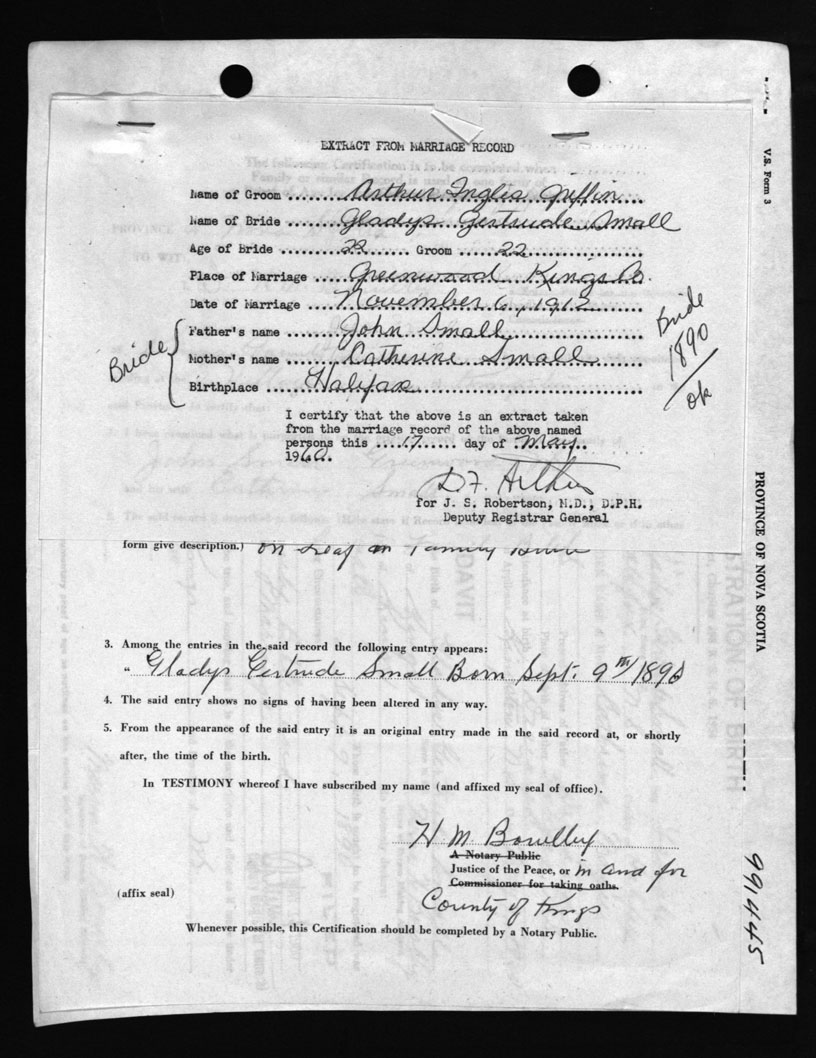 EXTRACT FROM MARRIAGE RECORD
Name of Groom ...... Arthur Inglis Giffin
Name of Bride ...... Gladys Gertrude Small
Age of Bride ...... 22 ...... Groom ...... 22
Place of Marriage ...... Greenwood Kings Co.
Date of Marriage ...... November 6, 1912
Bride
Father's name ...... John Small
Mother's name ...... Catherine Small
Birthplace ...... Halifax
Bride
1890
ok
I certify that the above is an extract taken
from the marriage record of the above named
persons this ....17...... day of May
1960.
for J. S. Robertson, M.D., D.P.H.
Deputy Registrar General
form give description.) on Leaf in Family Bible
3. Among the entries in the said record the following entry appears:
" Gladys Gertrude Small Born Sept. 9TH 1890
4. The said entry shows no signs of having been altered in any way.
5. From the appearance of the said entry it is an original entry made in the said record at, or shortly
after, the time of the birth.
In TESTIMONY whereof I have subscribed my name (and affixed my seal of office).
H. M.
A Notary Public
Justice of the Peace, or in and for
Commissioner for taking oaths.
County of Kings
(affix seal)
Whenever possible, this Certification should be completed by a Notary Public.
V.S. Form 3
PROVINCE OF NOVA SCOTIA
991445